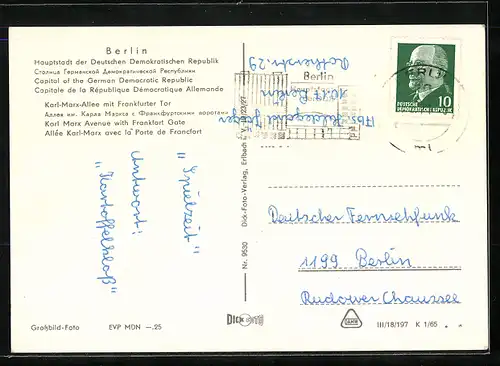 Berlin
Hauptstadt der Deutschen Demokratischen Republik
Столица Германской Демократической Республики
Capital of the German Democratic Republic
Capitale de la République Démocratique Allemande
Karl-Marx-Allee mit Frankfurter Tor
Аллея им. Карла Маркса с Франкфуртскими воротами
Karl Marx Avenue with Frankfort Gate
Allée Karl-Marx avec la Porte de Francfort
"Spielzeit"
Antwort:
"Kartoffelkloß"
Großbild-Foto
EVP MDN —.25
Nr. 9530
Dick-Foto-Verlag, Erlbach
DICK
Hildegard
1017 Berlin
29
Berlin
10
DEUTSCHE
DEMOKRATISCHE REPUBLIK
Deutscher Fernsehfunk
1199 Berlin
Rudower Chaussee
III/18/197 K 1/65